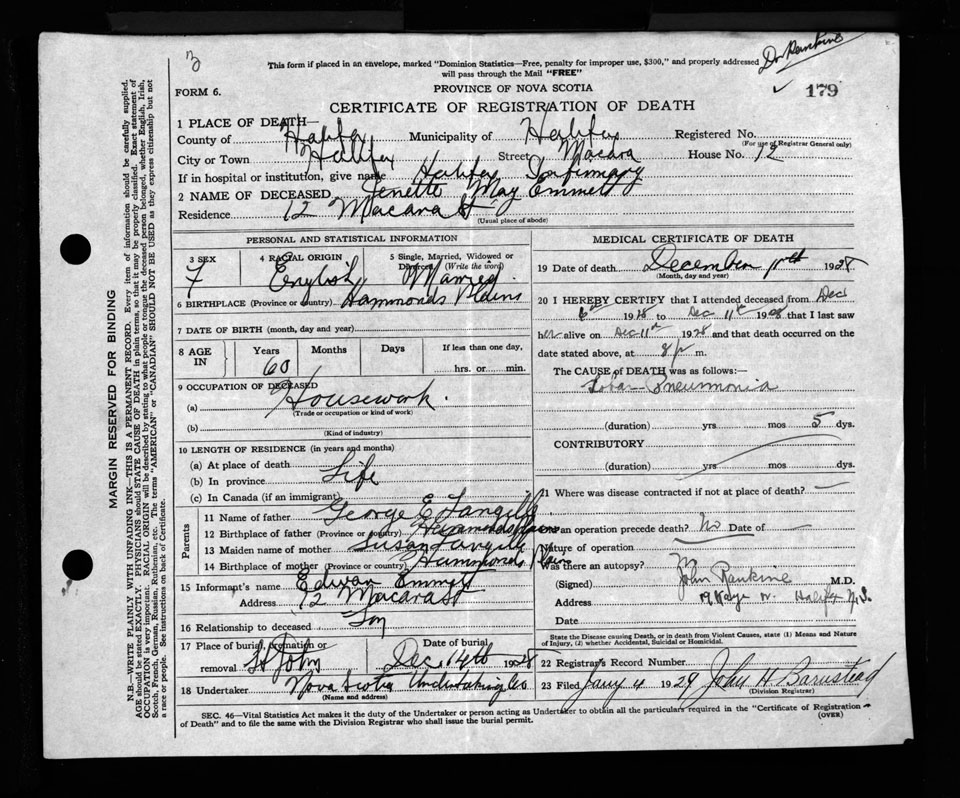 3
This form if placed in an envelope, marked "Dominion Statistics—Free, penalty for improper use, $300," and properly addressed
will pass through the Mail "FREE"
Dr Rankine
✓ 179
PROVINCE OF NOVA SCOTIA
FORM 6.
CERTIFICATE OF REGISTRATION OF DEATH
1 PLACE OF DEATH—
County of Halifax Municipality of Halifax Registered No.
(For use of Registrar General only)
City or Town Halifax Street Macara House No. 12
If in hospital or institution, give name Halifax Infirmary
2 NAME OF DECEASED Jenette May Emmet
Residence 12 Macara St
(Usual place of abode)
PERSONAL AND STATISTICAL INFORMATION
3 SEX 4 RACIAL ORIGIN 5 Single, Married, Widowed or
Divorced (Write the word)
F English Married
6 BIRTHPLACE (Province or country) Hammonds Plains
7 DATE OF BIRTH (month, day and year)
8 AGE IN Years Months Days If less than one day,
60 hrs. or min.
9 OCCUPATION OF DECEASED
(a) Housework.
(Trade or occupation or kind of work)
(b)
(Kind of industry)
10 LENGTH OF RESIDENCE (in years and months)
(a) At place of death
(b) In province Life
(c) In Canada (if an immigrant)
Parents
11 Name of father George E Langille
12 Birthplace of father (Province or country) Hammonds Plains
13 Maiden name of mother Susan Langille
14 Birthplace of mother (Province or country) Hammonds Plain
15 Informant's name Edwan Emmet
Address 12 Macara St
16 Relationship to deceased Son
17 Place of burial, cremation or
removal St John
Date of burial
Dec 14th 1928
18 Undertaker Nova Scotia Undertaking Co
(Name and address)
MEDICAL CERTIFICATE OF DEATH
19 Date of death December 11th 1928
(Month, day and year)
20 I HEREBY CERTIFY that I attended deceased from Dec
6th 1928 to Dec 11th 1928 that I last saw
her alive on Dec 11th 1928 and that death occurred on
date stated above, at 8 p m.
The CAUSE of DEATH was as follows:
Lobar Pneumonia
(duration) yrs mos 5 dys.
CONTRIBUTORY
(duration) yrs mos dys.
21 Where was disease contracted if not at place of death? —
an operation precede death? No Date of —
Nature of operation
Was there an autopsy?
(Signed) John Rankine M.D.
Address Halifax N.S.
Date
State the Disease causing Death, or in death from Violent Causes, state (1) Means and Nature
of Injury, (2) whether Accidental, Suicidal or Homicidal.
22 Registrar's Record Number
23 Filed Jany 4 1929 John H Barnstead
(Division Registrar)
SEC. 46—Vital Statistics Act makes it the duty of the Undertaker or person acting as Undertaker to obtain all the particulars required in the "Certificate of Registration
of Death" and to file the same with the Division Registrar who shall issue the burial permit.
(OVER)
MARGIN RESERVED FOR BINDING
N.B.—WRITE PLAINLY WITH UNFADING INK—THIS IS A PERMANENT RECORD. Every item of information should be carefully supplied.
AGE should be stated EXACTLY. PHYSICIANS should STATE CAUSE OF DEATH in plain terms, so that it may be properly classified. Exact statement of
OCCUPATION is very important. RACIAL ORIGIN will be described by stating to what people or tongue the deceased person belonged, whether English, Irish,
Scotch, French, German, Russian, Ruthenian, etc. The terms "AMERICAN" or "CANADIAN" SHOULD NOT BE USED as they express citizenship but not
a race or people. See instructions on back of Certificate.